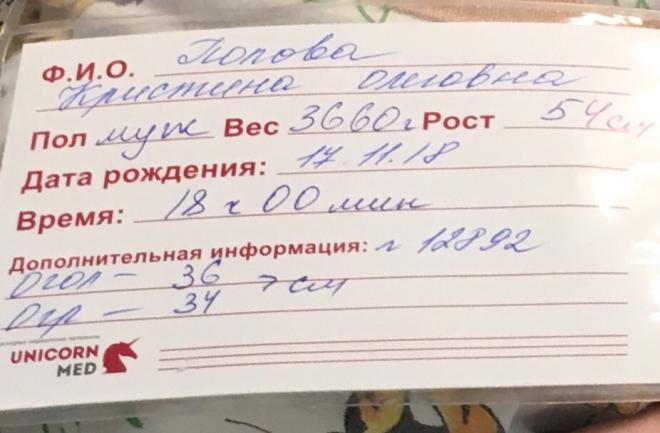 Ф.И.О. Попова
Кристина Олеговна
Пол муж Вес 3660 г Рост 54 см
Дата рождения: 17.11.18
Время: 18 ч 00 мин
Дополнительная информация: г 12892
Огол – 36 > см
Огр – 34
UNICORN
MED